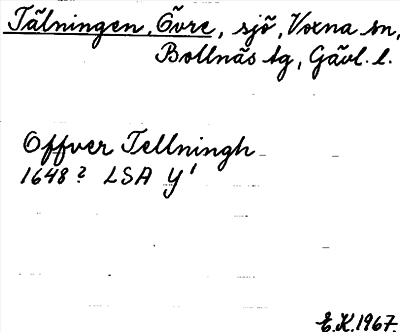 Tälningen, Övre, sjö, Voxna sn,
Bollnäs tg, Gävl. l.
Offver Tellningh
1648? LSA Y'
E.K. 1967.